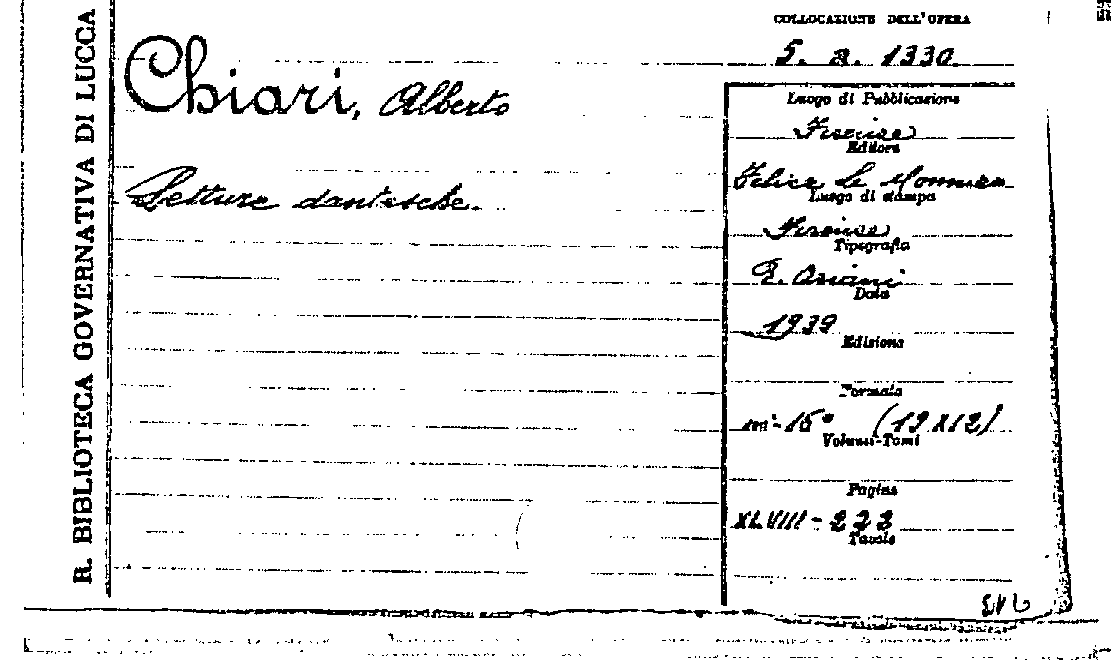 R. BIBLIOTECA GOVERNATIVA DI LUCCA
COLLOCAZIONE DELL'OPERA
5. a. 1330
Chiari, Alberto
Letture dantesche.
Luogo di Pubblicazione
Firenze
Editore
Felice Le Monnier
Luogo di stampa
Firenze
Tipografia
E. Ariani
Data
1939
Edizione
Formato
in-16° (19X12)
Volumi-Tomi
Pagine
XLVIII-222
Tavole